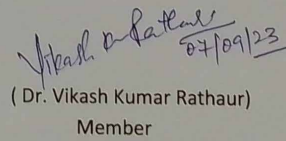 Vikash Kr Rathaur
07/09/23
( Dr. Vikash Kumar Rathaur)
Member